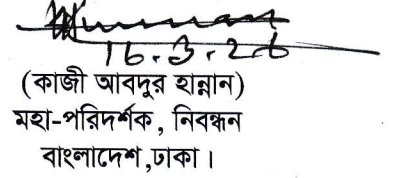 16.3.26
(কাজী আবদুর হান্নান)
মহা-পরিদর্শক, নিবন্ধন
বাংলাদেশ,ঢাকা।